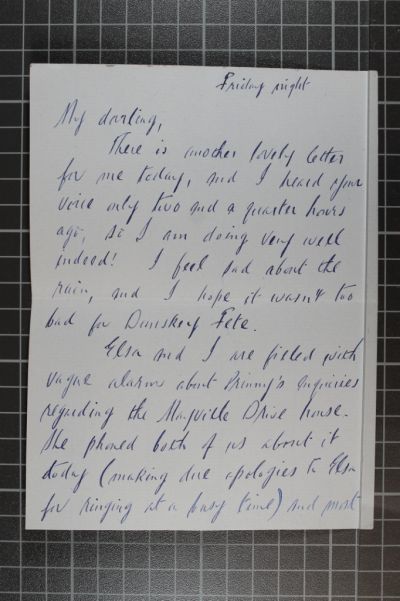 Friday night
My darling,
There is another lovely letter
for me today, and I heard your
voice only two and a quarter hours
ago, so I am doing very well
indeed! I feel sad about the
rain, and I hope it wasn't too
bad for Dunskey Fete.
Elsa and I are filled with
vague alarm about Prinny's inquiries
regarding the Maryville Drive house.
She phoned both of us about it
today (making due apologies to Elsa
for ringing at a busy time) and most